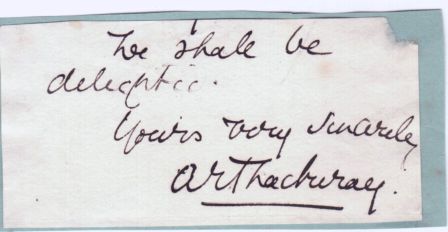 We shall be
delighted.
Yours very sincerely
ARThackeray.